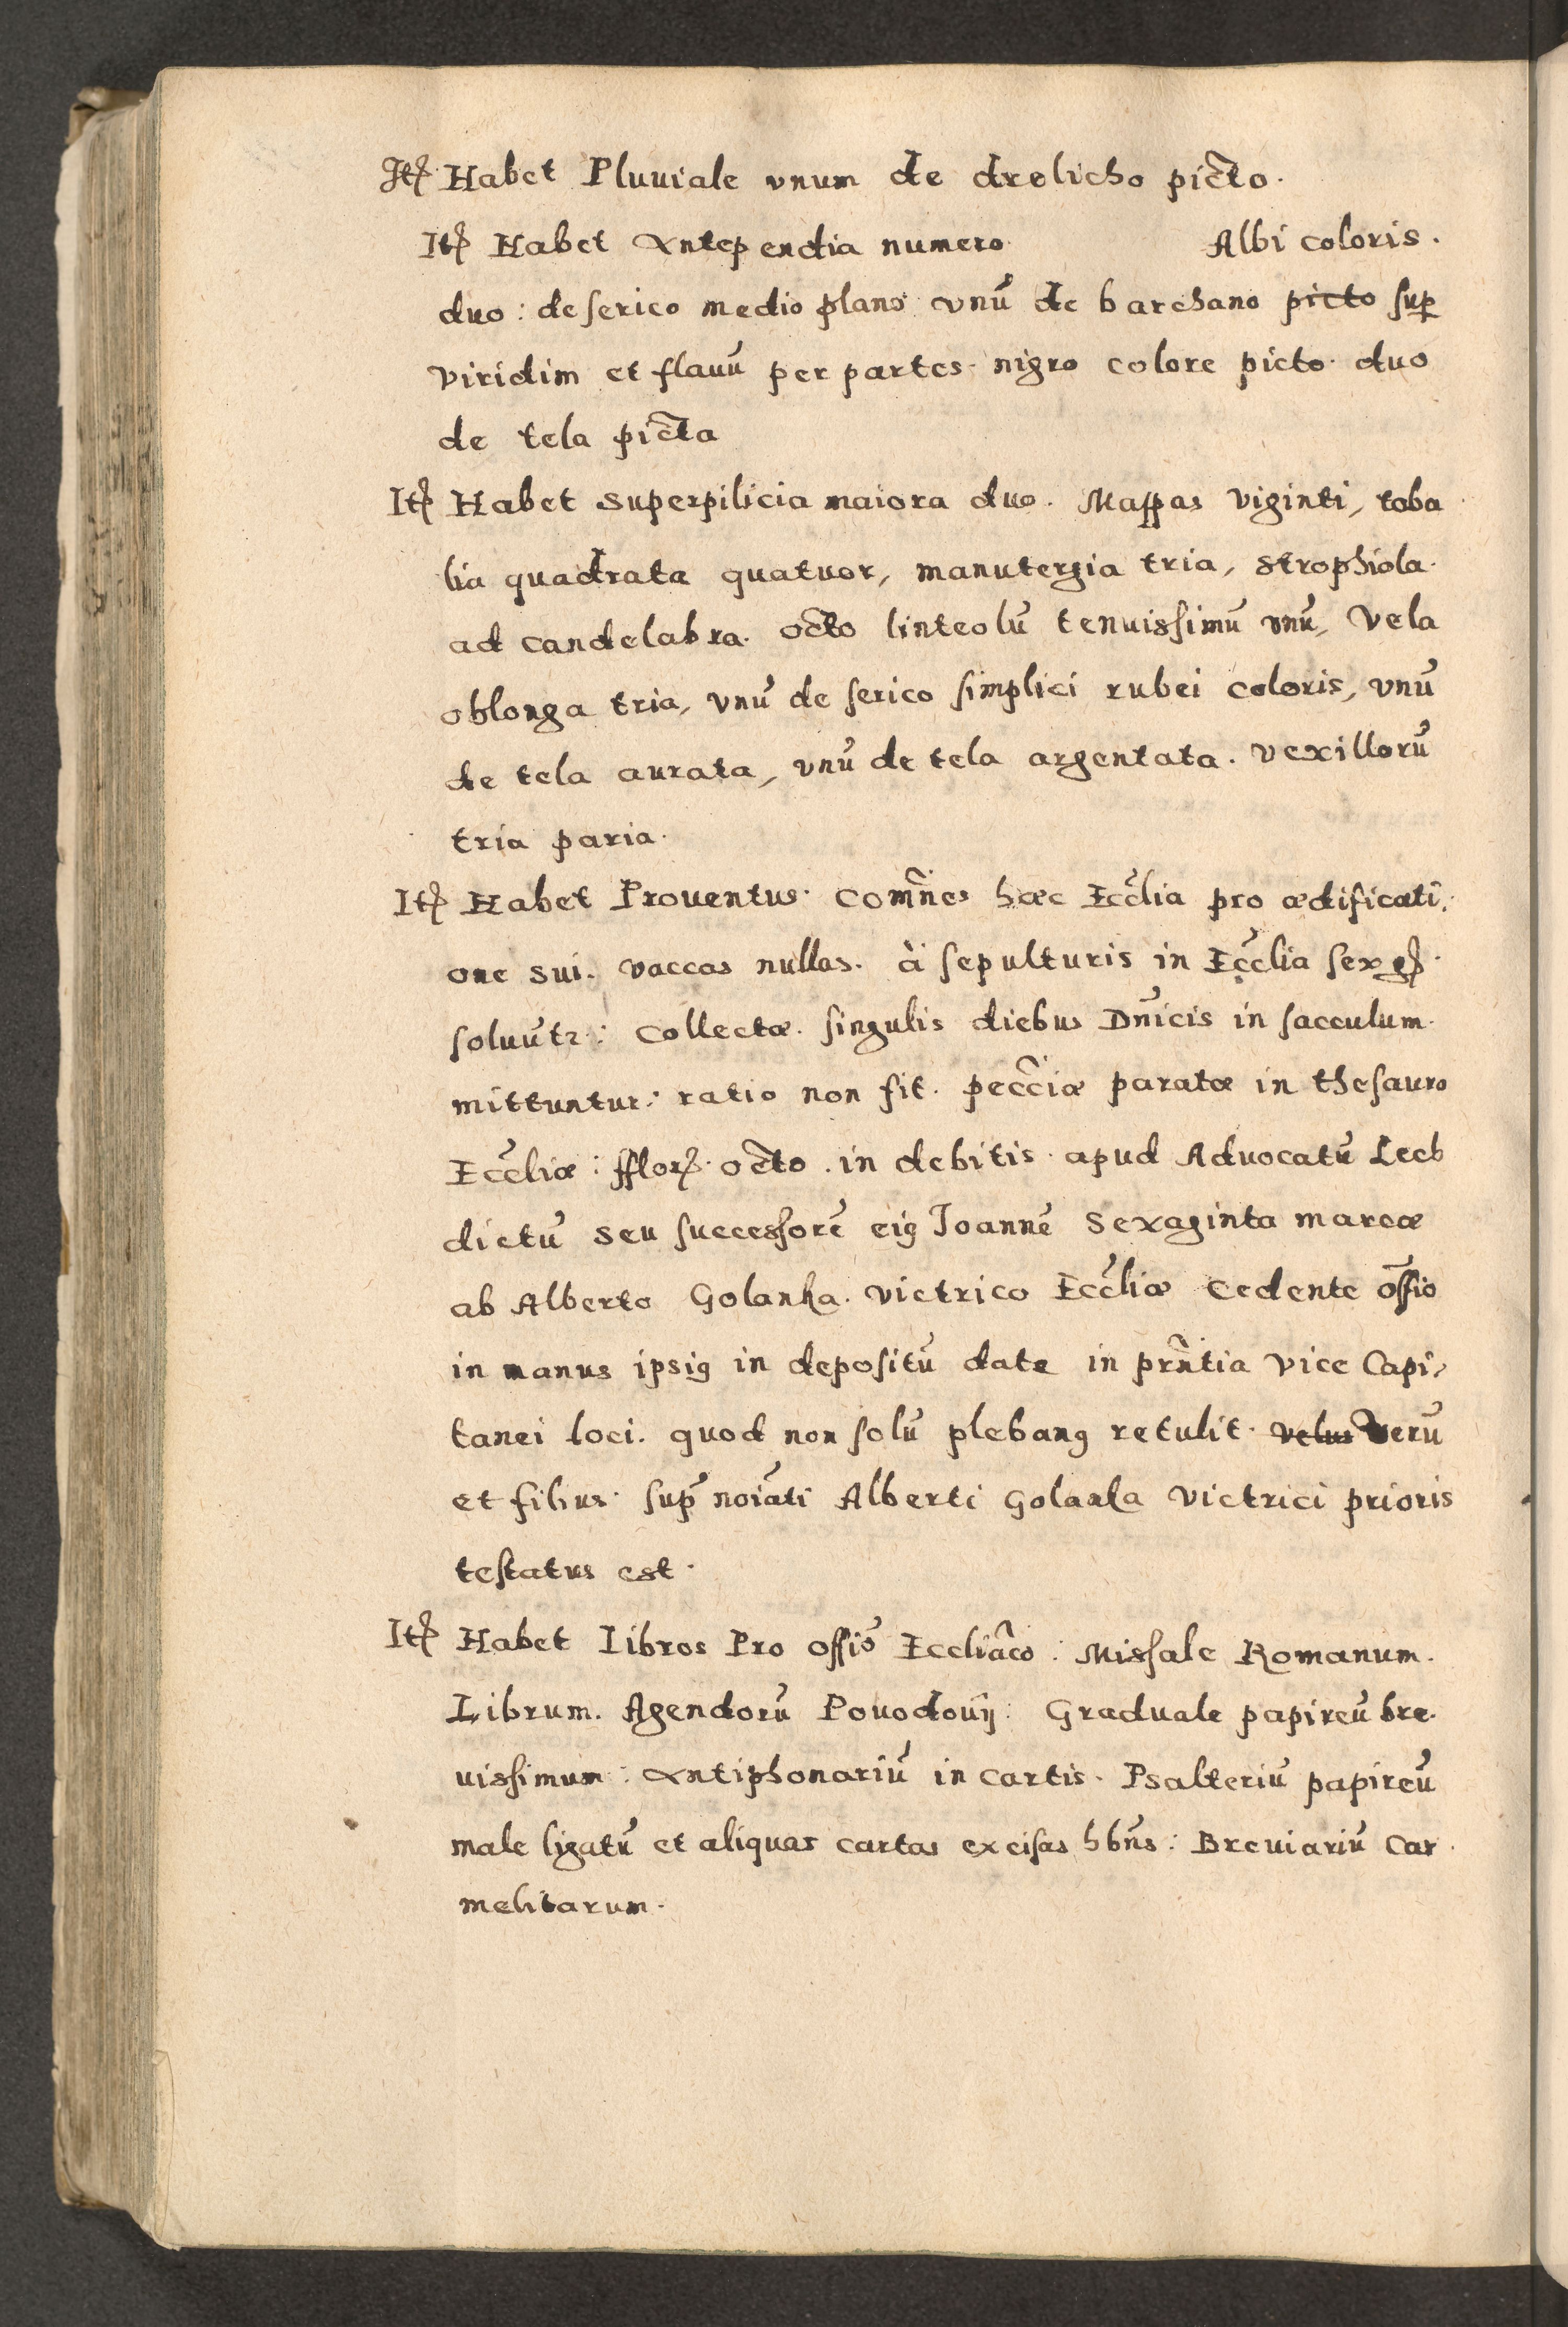 Itꝫ Habet Pluuiale vnum de drelicho picto.
Itꝫ Habet Antependia numero Albi coloris.
duo: de serico medio plano vnū de barchano picto suꝑ
viridim et flauū per partes nigro colore picto. duo
de tela picta
Itꝫ Habet superpilicia maiora duo. Mappas viginti, toba
lia quadrata quatuor, manutergia tria, strophiola
ad candelabra. octo linteolū tenuissimū vnū, Vela
oblonga tria, vnū de serico simplici rubei coloris, vnū
de tela aurata, vnū de tela argentata. vexillorū
tria paria.
Itꝫ Habet Prouentus. com̄nes hæc Eccl̄ia pro ædificati,
one sui. vaccas nullas. à sepulturis in Eccl̄ia sex gꝫ
soluūtr: Collectæ. singulis diebus Dn̄icis in sacculum
mittuntur: ratio non fit. pecc̄iæ paratæ in thesauro
Eccl̄iæ: fflorꝫ. octo. in debitis apud Aduocatū Lecb
dictū seu successorē eiꝯ Joannē Sexaginta marcæ
ab Alberto Golanka victrico Eccl̄iæ cedente off̄io
in manus ipsiꝯ in depositū datæ in prn̄tia vice Capi,
tanei loci. quod non solū plebanꝯ retulit. velus verū
et filius sup̄ noīati Alberti Golanka victrici prioris
testatus est.
Itꝫ Habet Libros Pro offiō Eccliāco: Missale Romanum.
Librum. Agendorū Pouodouij: Graduale papireū bre.
uissimum: Antiphonariū in cartis. Psalteriū papireū
male ligatū et aliquas cartas excisas hbn̄s: Breuiariū Car
melitarum.